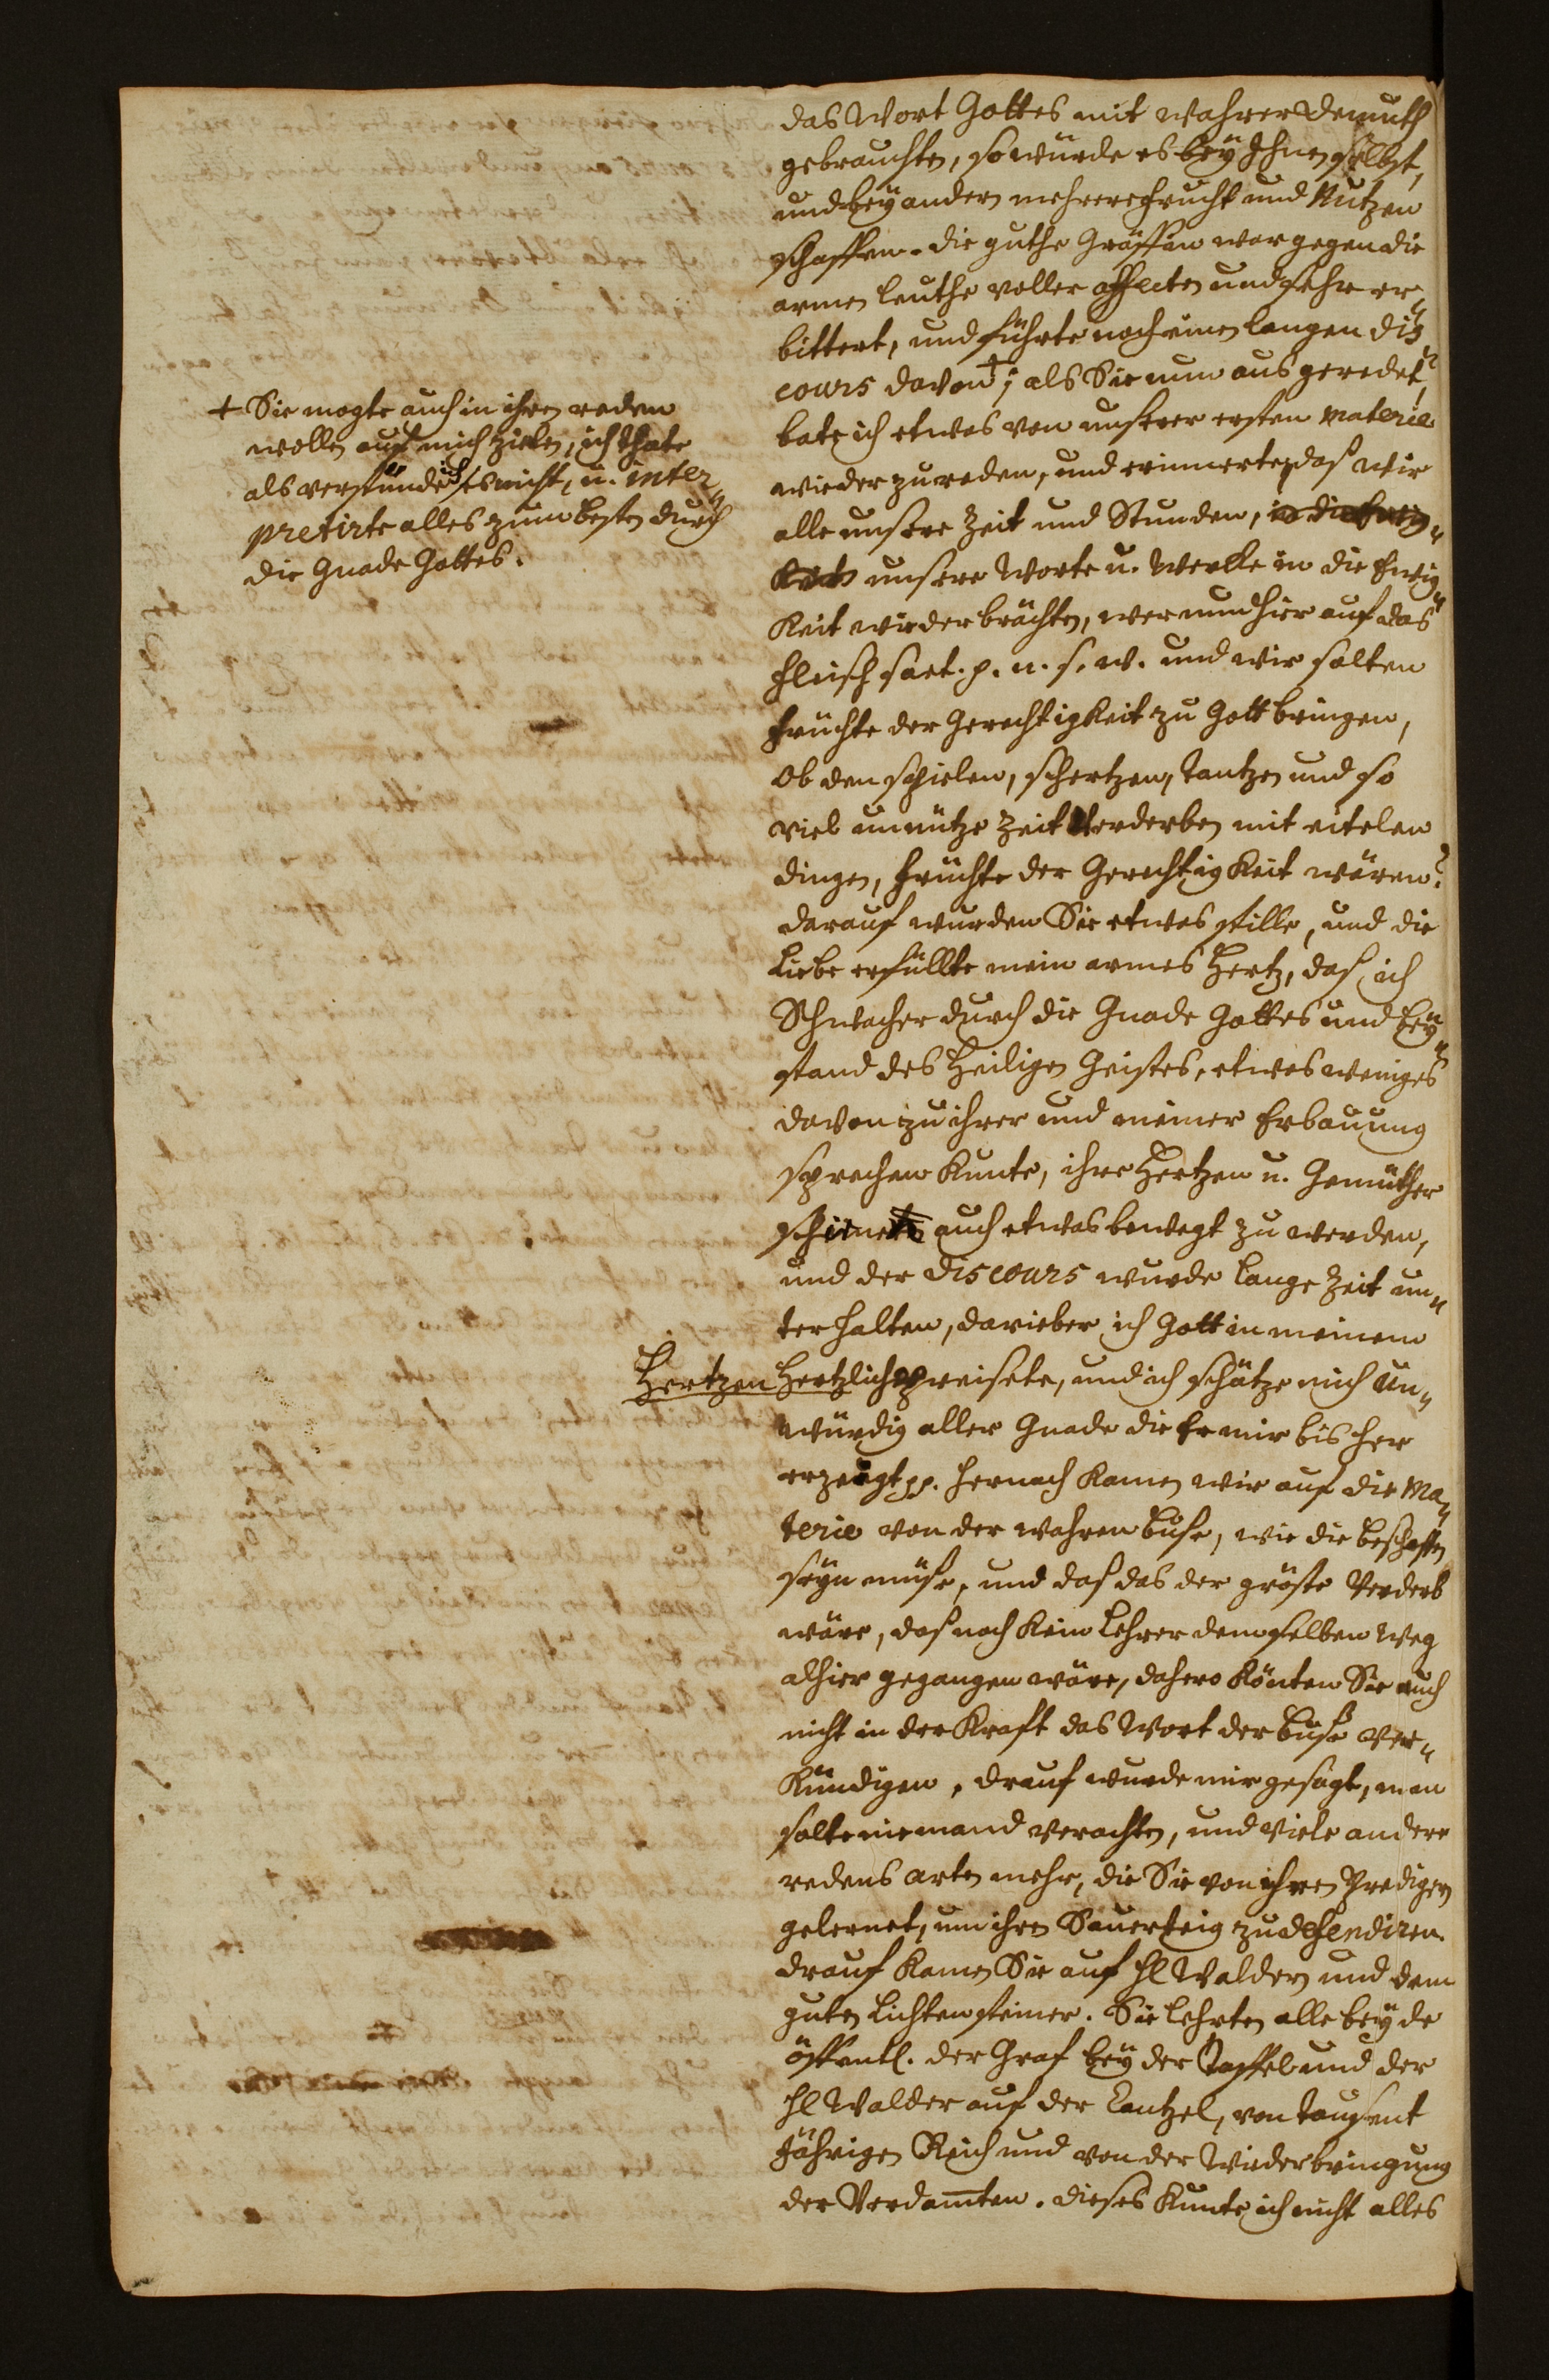 das Wort Gottes mit wahrer Demuth
gebrauchten, so würde es beÿ Ihnen selbst,
und beÿ andern mehrere Frucht und Nutzen
schaffen. die guthe Gräffin war gegen die
armen leuthe voller affecten und sehr er„
bittert, und führte noch einen langen dis„
cours davon †; als Sie nun aus geredet,
bate ich etwas von unserer ersten materie
wieder zu reden, und erinnerte, daß wir
alle unsere Zeit und Stunden, in die Ewig„
keit unsere Worte u. Wercke in die Ewig„
Keit wieder brächten, wer nun hier auf das
Fleisch säet. p. u. s. w. und wir solten
Früchte der Gerechtigkeit zu Gott bringen,
Ob den spielen, schertzen, Tantzen und so
viel unnütze Zeit Verderben mit eitelen
dingen, Früchte der Gerechtigkeit wären?
darauf wurden Sie etwas stille, und die
Liebe erfüllte mein armes Hertz, daß ich
Schwacher durch die Gnade Gottes und beÿ„
stand des Heiligen Geistes, etwas weniges
davon zu ihrer und meiner Erbauung
sprechen Kunte, ihre Hertzen u. Gemüther
schienen auch etwas bewegt zu werden,
und der discours wurde lange Zeit un„
ter halten, darieber ich Gott in meinem
Hertzen Hertzlich preisete, und ich schätze mich un„
würdig aller Gnade die Er mir bis her
erzeugt pp. hernach Kamen wir auf die Ma„
terie von der wahren Buße, wie die beschaffen
seÿn müße, und daß das der gröste Verderb
wäre, daß noch Kein Lehrer demselben Weg
alhier gegangen wäre, dahero Könten Sie auch
nicht in der Kraft das Wort der Buße ver„
Kündigen, drauf wurde mir gesagt, man
solte niemand verachten, und viele andere
redens arten mehr, die Sie von ihren Predigern
gelernet, um ihren Sauerteig zu defendiren.
drauf Kamen Sie auf H. Waldern und dem
guten Lichtensteiner. Sie lehrten alle beÿde
öffentl. der Graf beÿ der Taffel und der
H. Walder auf der Cantzel, von tausent
Jährigen Reich und von der Wiederbringung
der Verdamten. dieses Kunte ich nicht alles
† Sie mogte auch in ihren reden
wollen auf mich zielen, ich thate
als verstünde ich es nicht, u. inter„
pretirte alles zum besten durch
die Gnade Gottes.